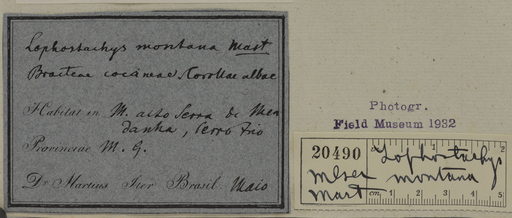 Lophostachys montana Mart
Bracteae coccineae Corollae albae
Habitat in M. alto Serra de Men
danha, Cerro Frio
Provinciae M. G.
Dr Martius Iter Brasil. Maio
Photogr.
Field Museum 1932
20490
Lophostachys
montana
Mart